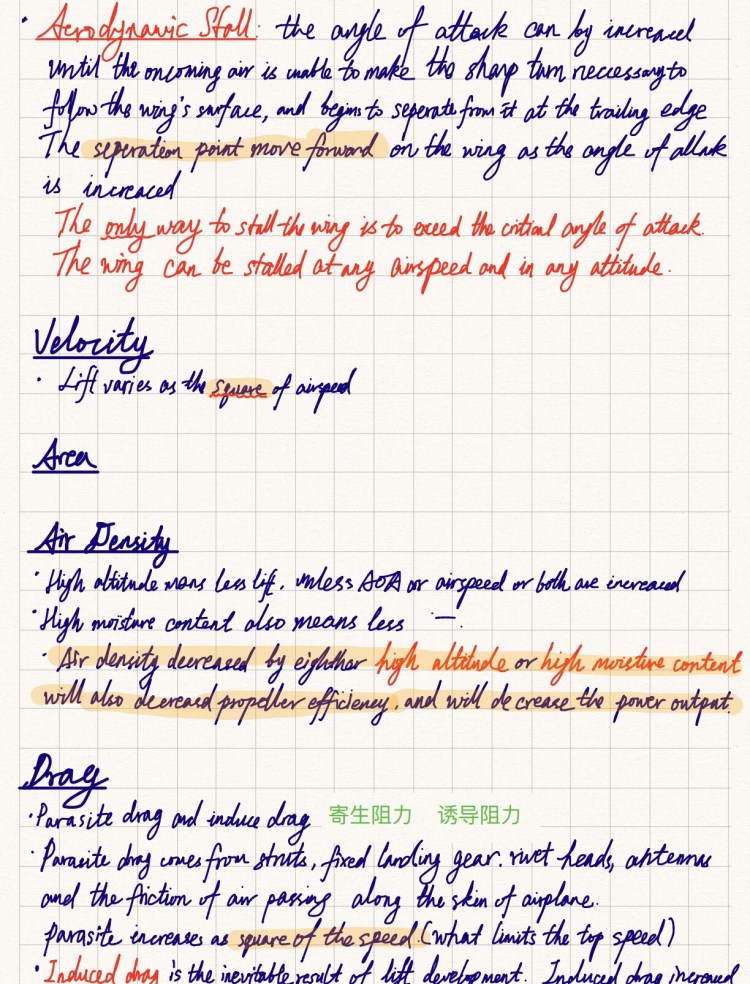 · Aerodynamic Stall: the angle of attack can by increased
until the oncoming air is unable to make the sharp turn neccessary to
follow the wing's surface, and begins to seperate from it at the trailing edge
The seperation point move forward on the wing as the angle of attack
is increaced
The only way to stall the wing is to exceed the critical angle of attack.
The wing can be stalled at any airspeed and in any attitude.
Velocity
· Lift varies as the square of airspeed
Area
Air Density
· High altitude means less lift, unless AOA or airspeed or both are increased
· High moisture content also means less —.
· Air density decreased by eighther high altitude or high moisture content
will also decreased propeller efficiency, and will decrease the power output.
Drag
· Parasite drag and induce drag 寄生阻力 诱导阻力
· Parasite drag comes from struts, fixed landing gear, rivet heads, antennas
and the friction of air passing along the skin of airplane.
Parasite increases as square of the speed. (what limits the top speed)
· Induced drag is the inevitable result of lift development. Induced drag increased